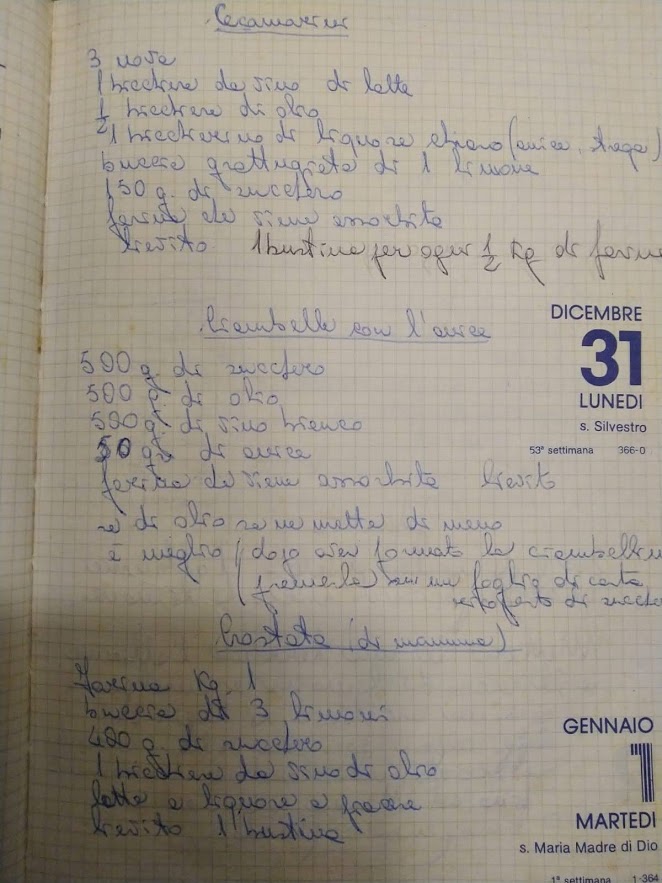 Cecamarini
3 uova
1 bicchiere da vino di latte
1/2 bicchiere di olio
1 bicchierino di liquore chiaro (anice, strega)
buccia grattugiata di 1 limone
150 g. di zucchero
farina che viene assorbita
lievito 1 bustina per ogni 1/2 Kg di farina
Ciambelle con l'anice
DICEMBRE
31
LUNEDI
s. Silvestro
53ª settimana 366-0
500 g. di zucchero
500 g. di olio
500 g. di vino bianco
50 g. di anice
farina che viene assorbita lievito
se di olio se ne mette di meno
è meglio (dopo aver formato le ciambelline
premerle su un foglio di carta
ricoperto di zucchero
Crostata (di mamma)
Farina Kg. 1
buccia di 3 limoni
400 g. di zucchero
1 bicchiere da vino di olio
latte e liquore a piacere
lievito 1 bustina
GENNAIO
1
MARTEDI
s. Maria Madre di Dio
1ª settimana 1-364